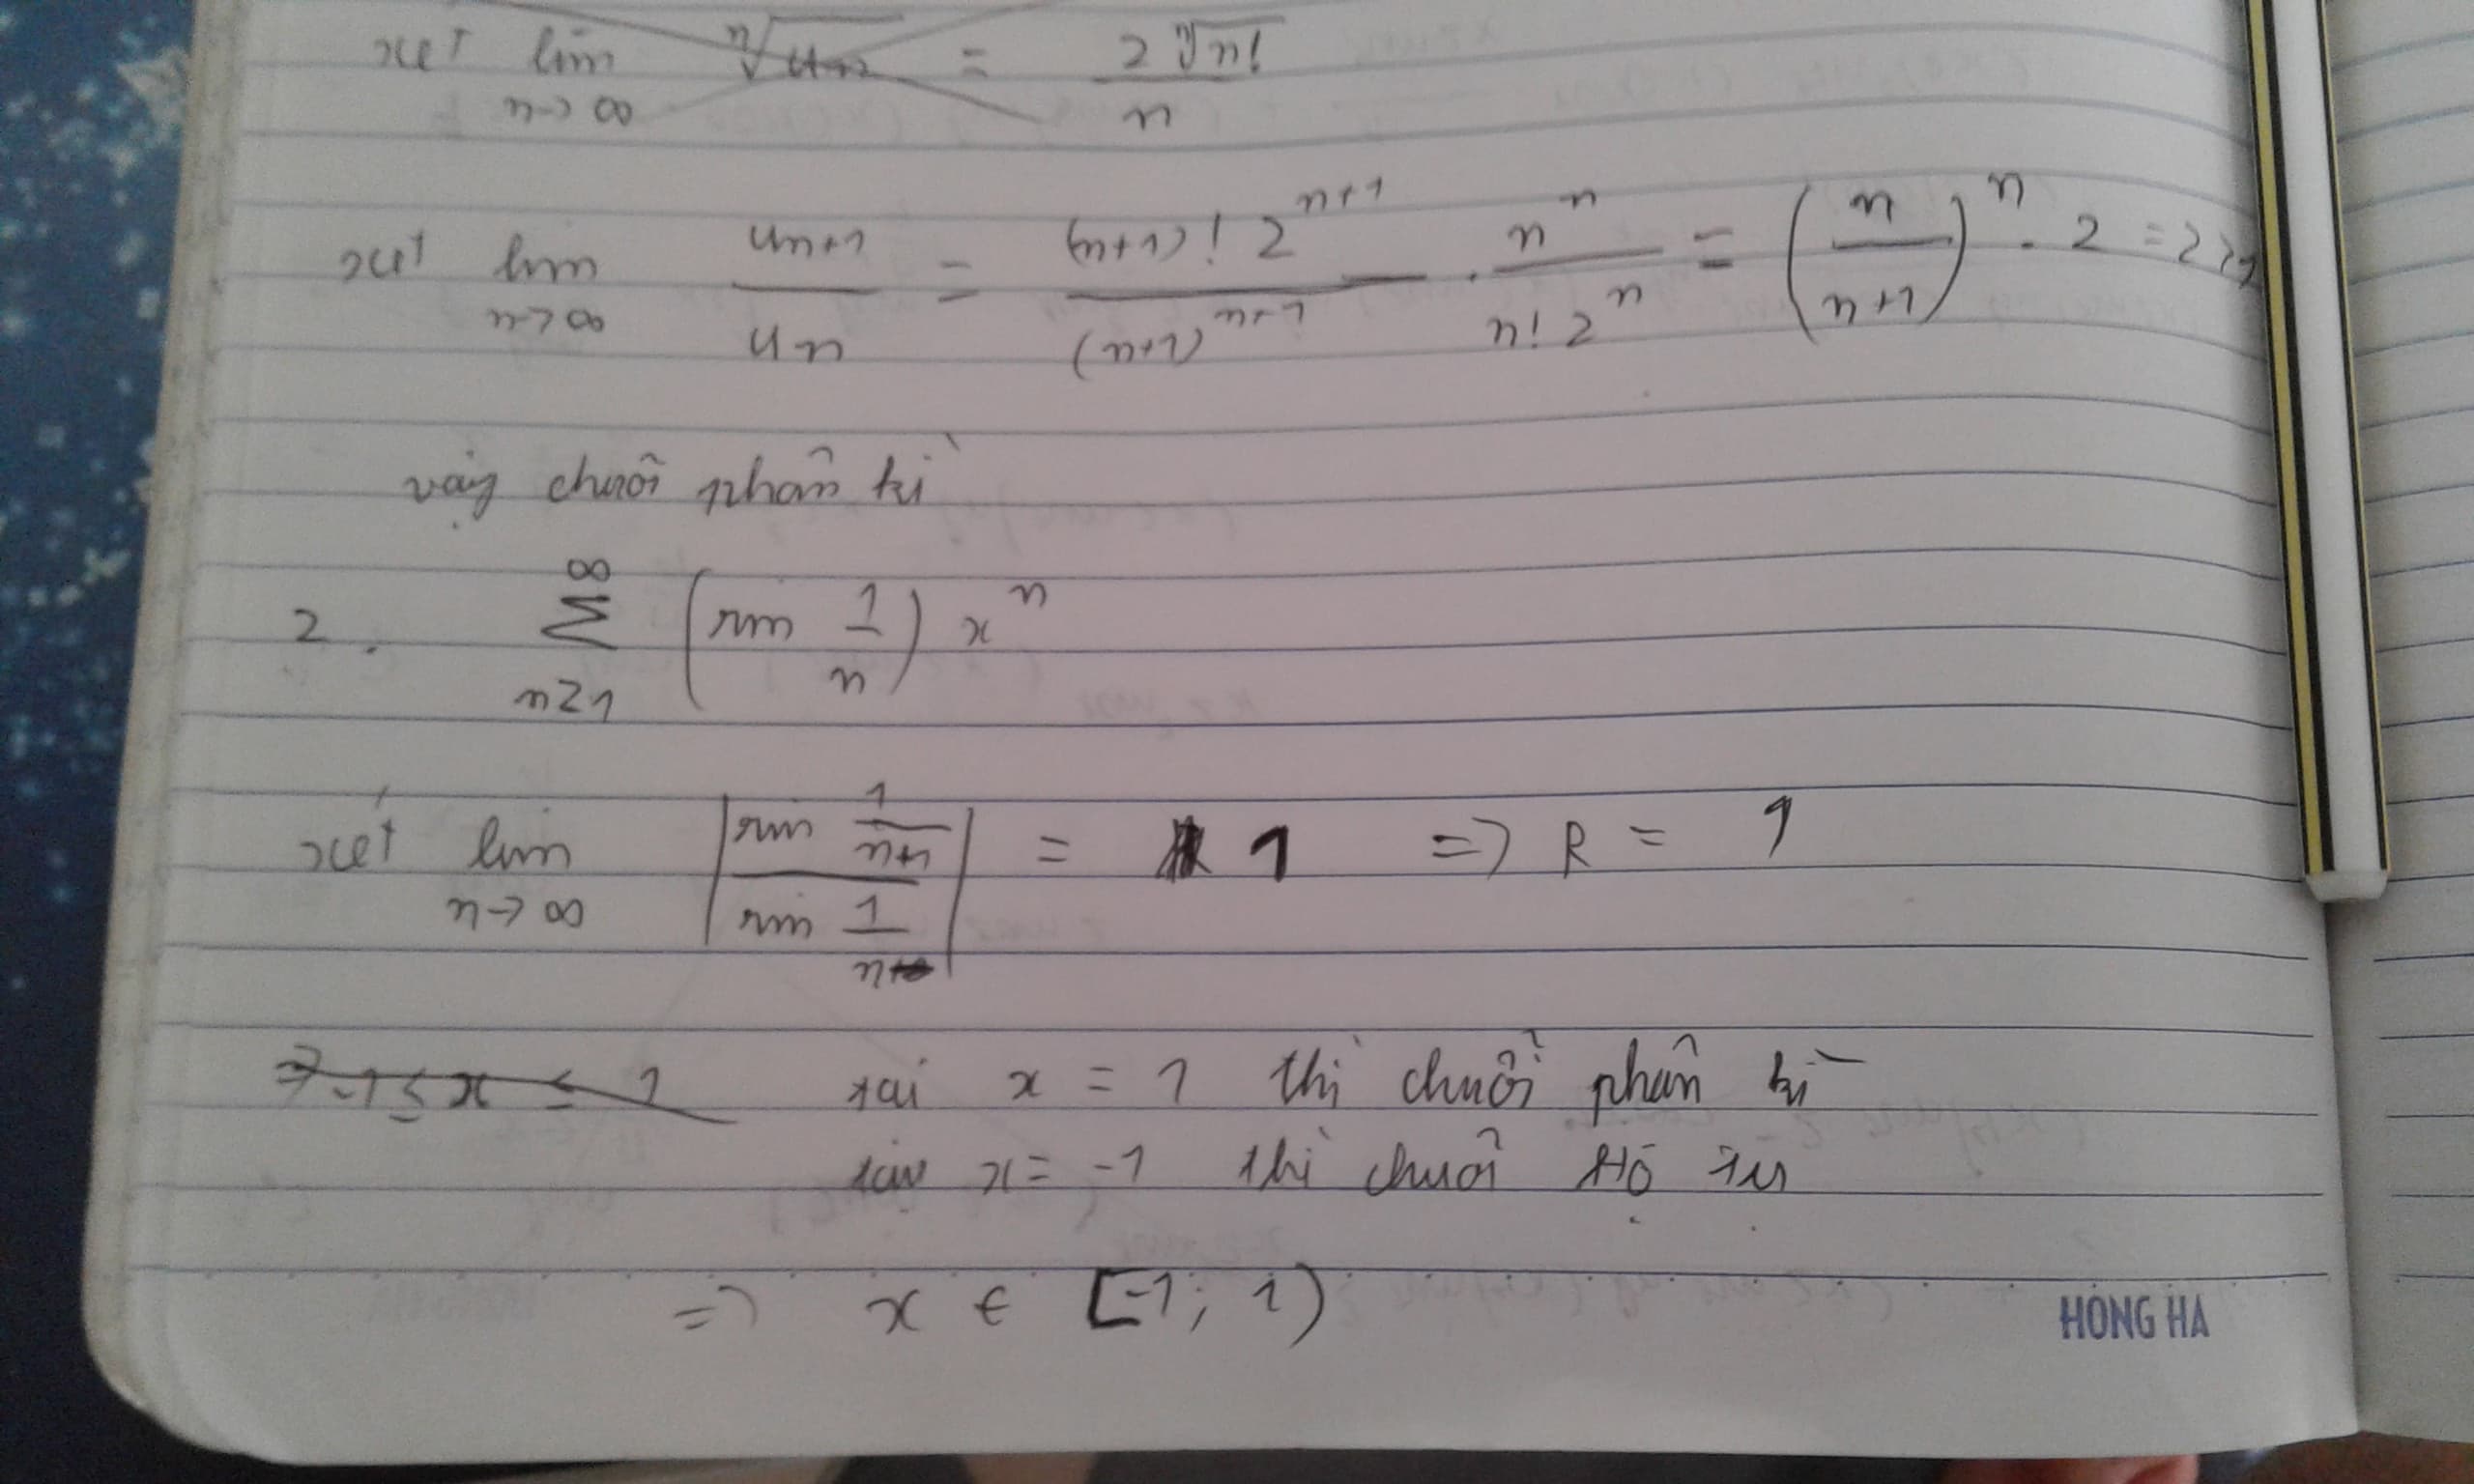 xét lim n→∞ ⁿ√un = 2 ⁿ√n! / n
xét lim n→∞ un+1 / un = (n+1)! 2^(n+1) / (n+1)^(n+1) . n^n / n! 2^n = (n / n+1)^n . 2 = 2 >1
vậy chuỗi phân kì
2. ∞ Σ n≥1 (sin 1/n) x^n
xét lim n→∞ | sin 1/n+1 / sin 1/n | = 1 => R = 1
=> -1 ≤ x ≤ 1 tại x = 1 thì chuỗi phân kì
tại x = -1 thì chuỗi Hội tụ
=> x ∈ [-1; 1)
HỒNG HÀ